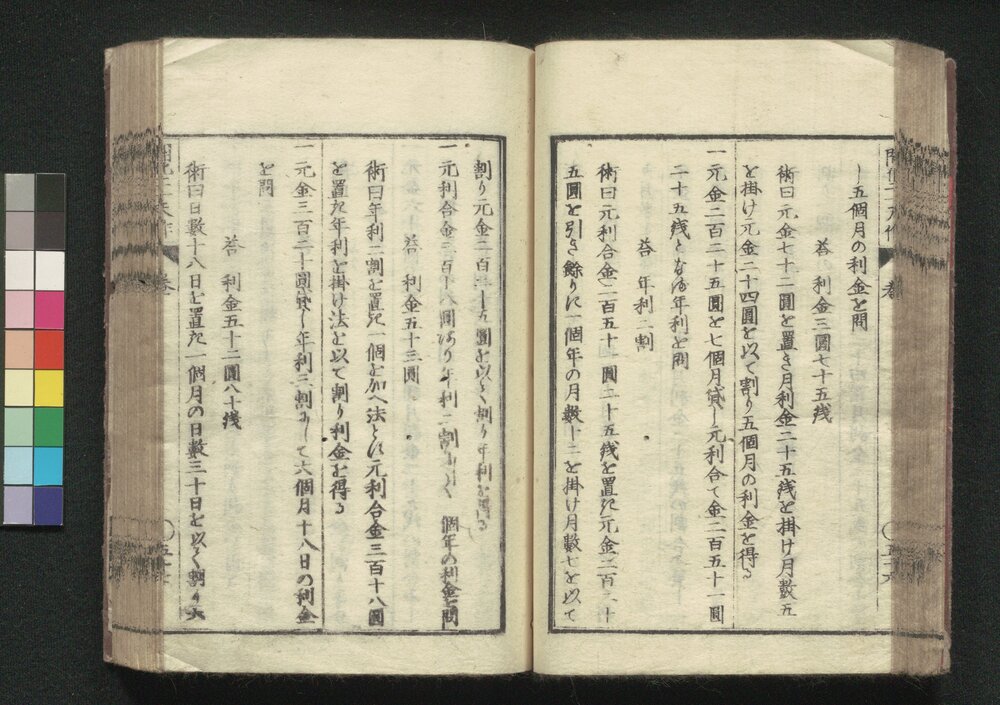 し五個月の利金を問
答 利金三圓七十五銭
術曰元金七十二圓を置き月利金二十五銭を掛け月數五
を掛け元金二十四圓を以て割り五個月の利金を得る
一元金二百二十五圓を七個月貸し元利合て金二百五十一圓
二十五銭となる年利を問
答 年利二割
術曰元利合金二百五十一圓二十五銭を置き元金二百二十
五圓を引き餘りに一個年の月數十二を掛け月數七を以て
割り元金二百二十五圓を以て割り年利を得る
一元利合金三百十八圓あり年利二割にして一個年の利金を問
答 利金五十三圓
術曰年利二割を置き一個を加へ法とし元利合金三百十八圓
を置き年利を掛け法を以て割り利金を得る
一元金三百二十圓貸し年利三割にして六個月十八日の利金
を問
答 利金五十二圓八十銭
術曰日數十八日を置き一個月の日數三十日を以て割り六